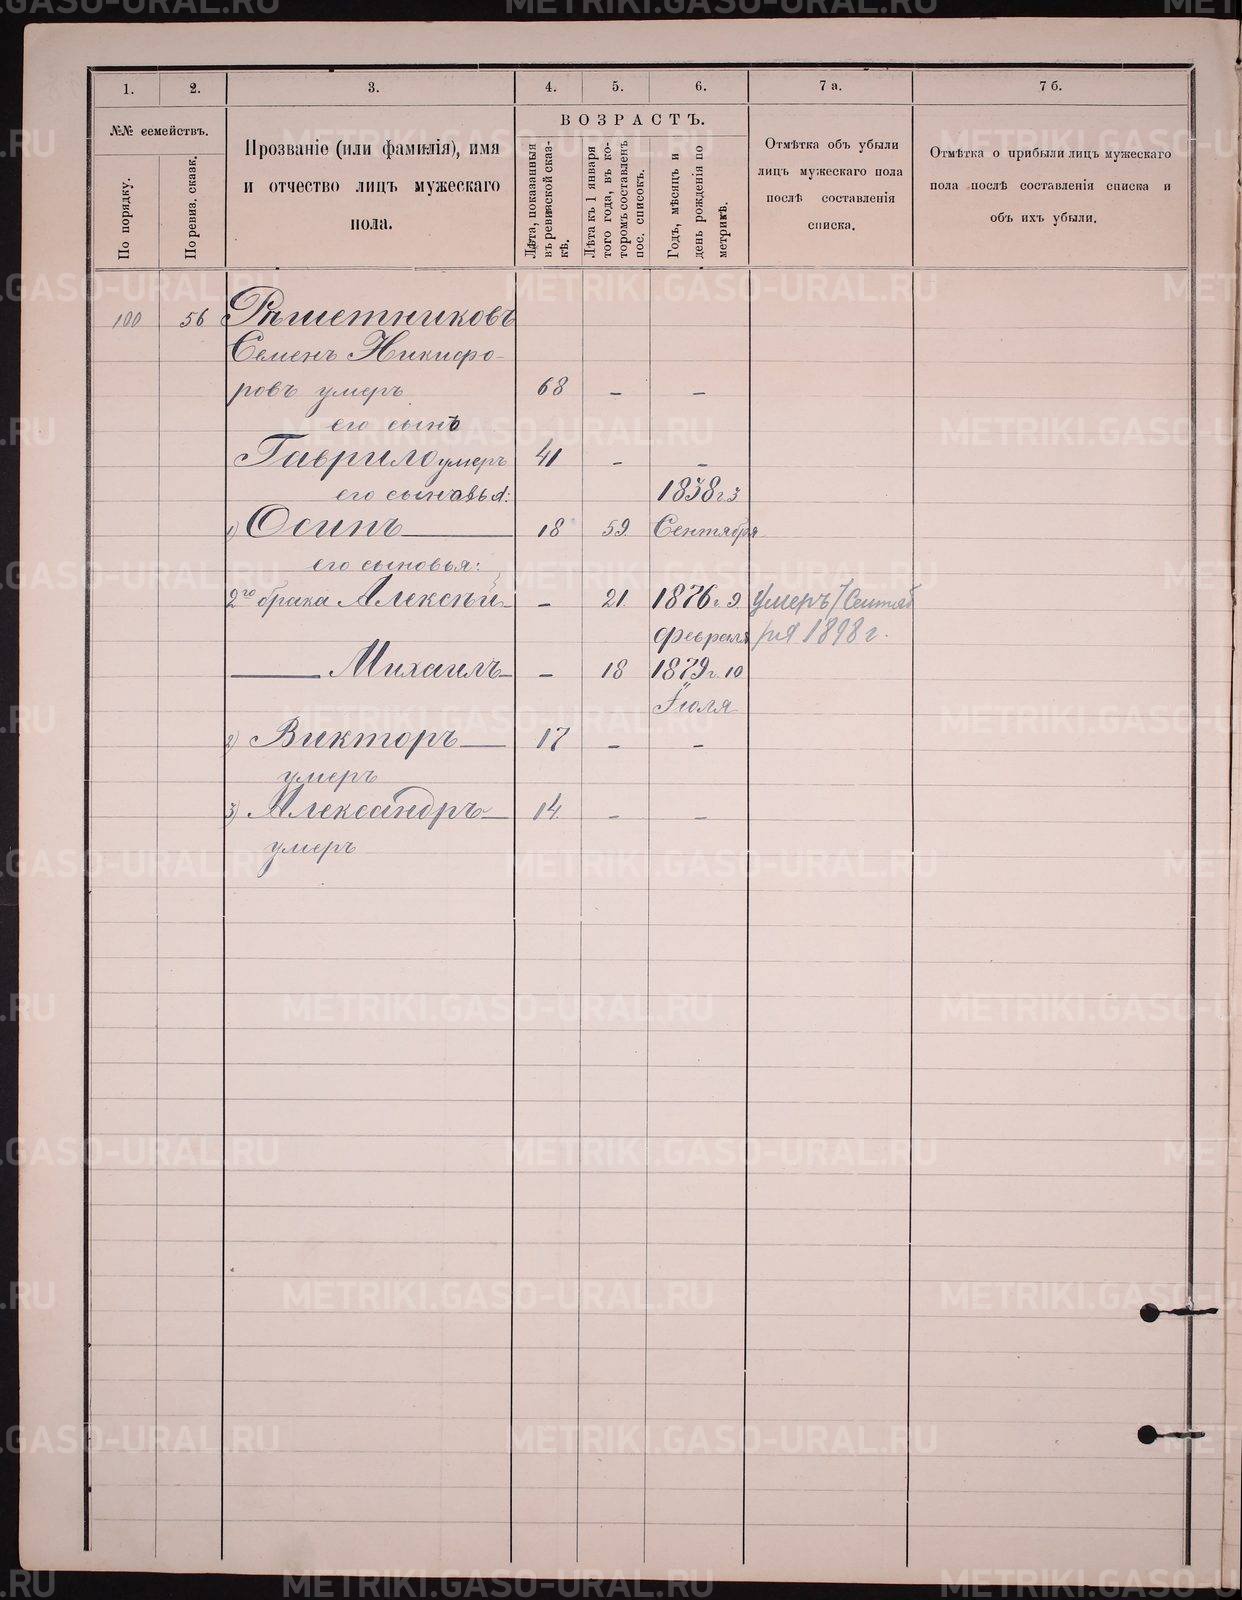 1.
2.
3.
4.
5.
6.
7 а.
7 б.
№№ семействъ.
По порядку.
По ревиз. сказк.
Прозваніе (или фамилія), имя
и отчество лицъ мужескаго
пола.
ВОЗРАСТЪ.
Лѣта, показанныя
въ ревизской сказ-
кѣ.
Лѣта къ 1 января
того года, въ ко-
торомъ составленъ
пос. списокъ.
Годъ, мѣсяцъ и
день рожденія по
метрикѣ.
Отмѣтка объ убыли
лицъ мужескаго пола
послѣ составленія
списка.
Отмѣтка о прибыли лицъ мужескаго
пола послѣ составленія списка и
объ ихъ убыли.
100 56 Рѣшетниковъ
Семенъ Никифо-
ровъ умеръ 68 - -
его сынъ
Гаврило умеръ 41 - -
его сыновья: 1838 г. 3
1) Осипъ 18 59 Сентября
его сыновья:
2го брака Алексѣй - 21 1876 г. 9 Умеръ 7 Сентяб
февраля ря 1898 г.
Михаилъ - 18 1879 г. 10
Іюля
2) Викторъ 17 - -
умеръ
3) Александръ 14 - -
умеръ
METRIKI.GASO-URAL.RU